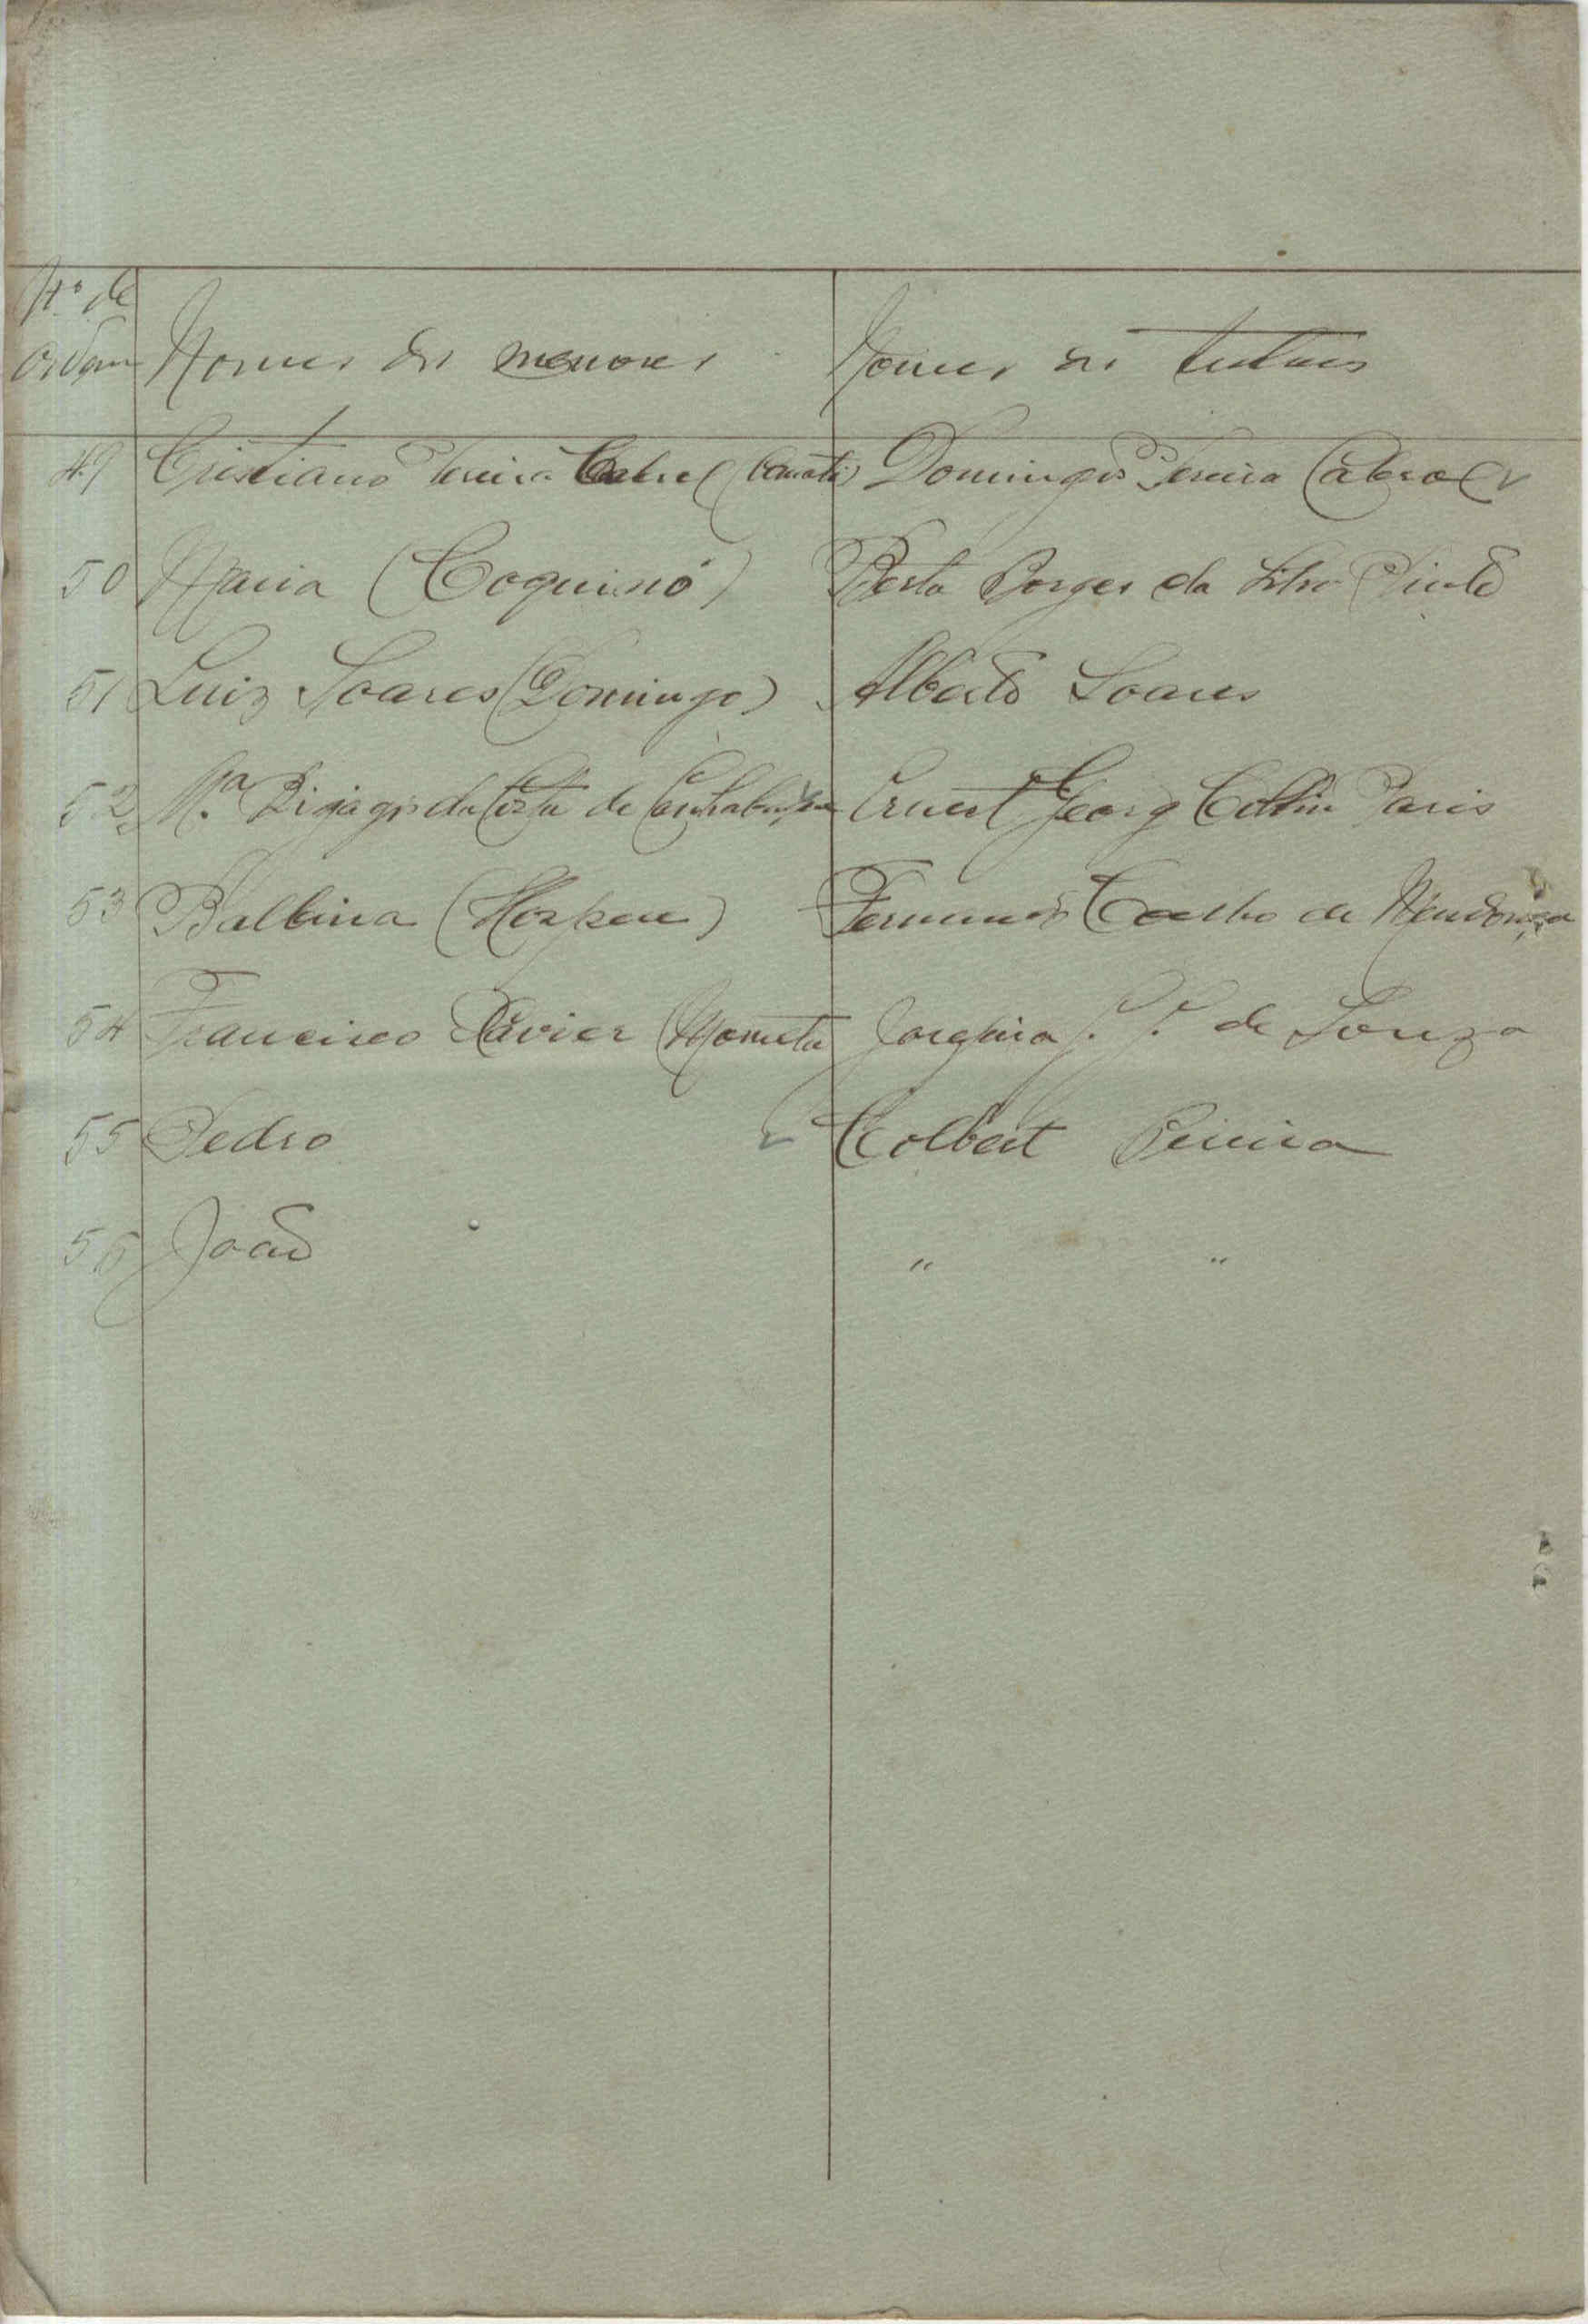 Nº de
Ordem Nomes dos menores Nomes dos tutores
49 Cristiano Pereira Cabral Domingos Pereira Cabral
50 Maria (Coquinó) Berta Borges da Silva Pinto
51 Luiz Soares (Domingo) Alberto Soares
52 M.ª Bijagó da Costa de Ernest Georg Collin Paris
53 Balbina Fernando Coelho de Mendonça
54 Francisco Xavier Josephina de Souza
55 Pedro Colbert Pereira
56 João " "